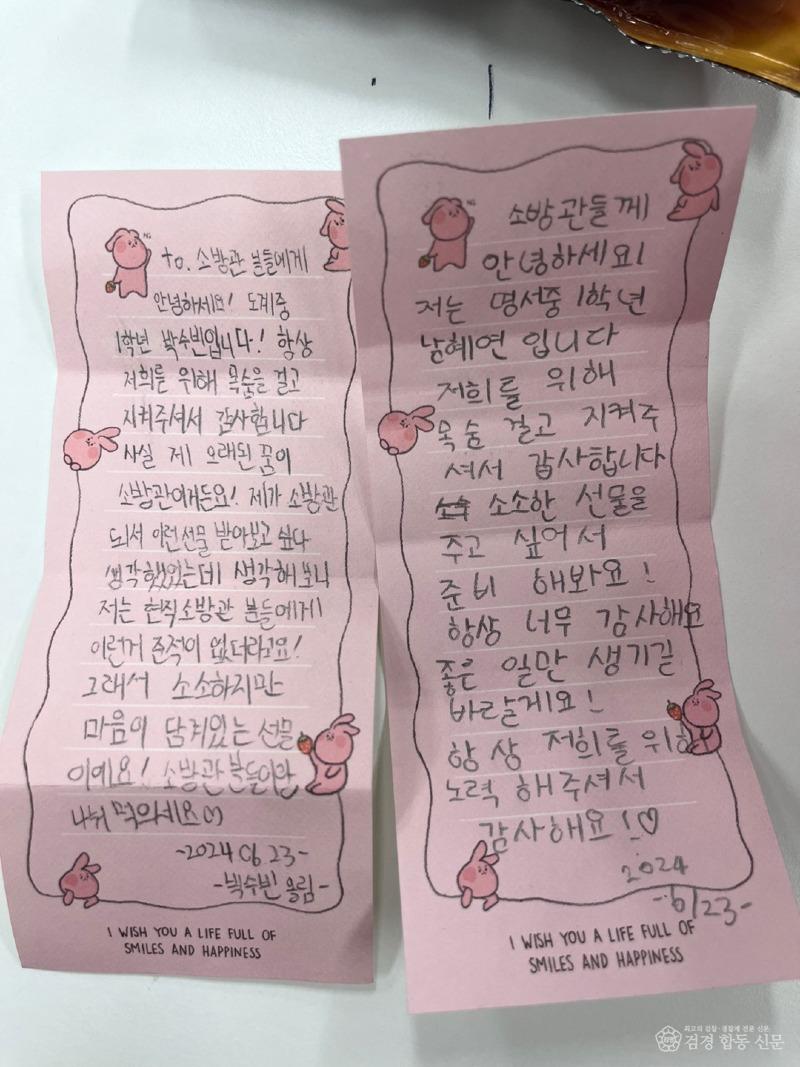 to. 소방관 분들에게
안녕하세요! 도계중
1학년 박수빈입니다! 항상
저희를 위해 목숨을 걸고
지켜주셔서 감사합니다
사실 제 오래된 꿈이
소방관이거든요! 제가 소방관
되서 이런선물 받아보고 싶다
생각했었는데 생각해보니
저는 현직소방관 분들에게
이런거 준적이 없더라고요!
그래서 소소하지만
마음이 담겨있는 선물
이예요! 소방관분들이랑
나눠 먹으세요
-2024 06 23-
-박수빈 올림-
I WISH YOU A LIFE FULL OF
SMILES AND HAPPINESS
소방관들께
안녕하세요!
저는 명서중 1학년
남혜연 입니다
저희를 위해
목숨 걸고 지켜주
셔서 감사합니다
소소한 선물을
주고 싶어서
준비 해봐요!
항상 너무 감사해요
좋은 일만 생기길
바랄게요!
항상 저희를 위해
노력 해주셔서
감사해요!♡
2024
-6/23-
I WISH YOU A LIFE FULL OF
SMILES AND HAPPINESS
최고의 검찰·경찰계 전문 신문
검경 합동 신문